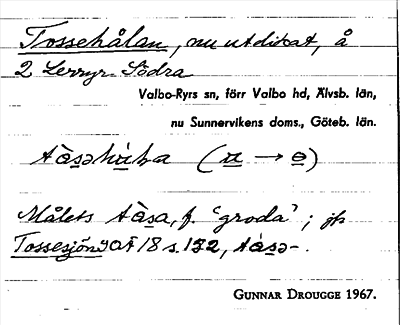 Tossehålan, nu utdikat, å
2 Lerryr Södra
Valbo-Ryrs sn, förr Valbo hd, Älvsb. län,
nu Sunnervikens doms., Göteb. län.
tòsəhòla (n → o)
Målets tòsa, f. 'groda'; jfr
Tossesjön SOÄ 18 s. 132, tòsə-.
GUNNAR DROUGGE 1967.